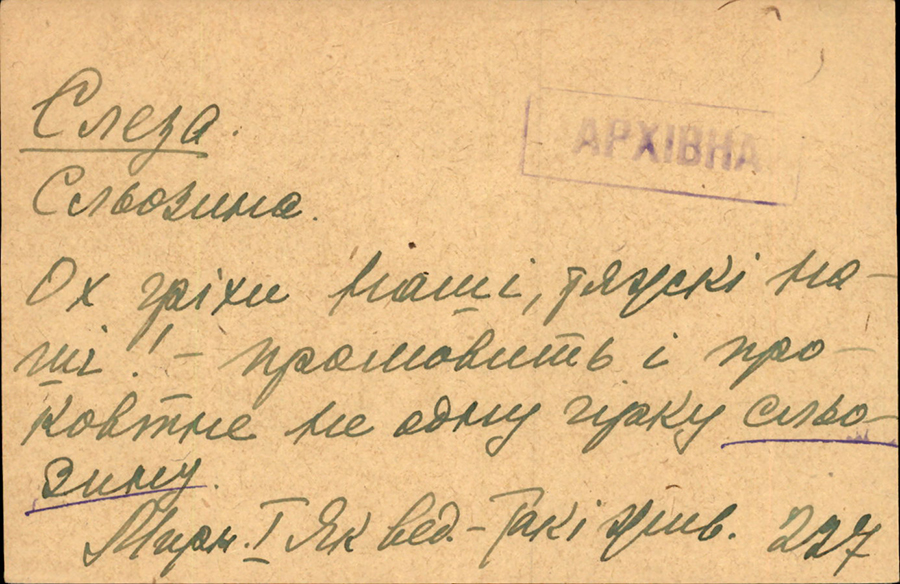 Слеза.
АРХІВНА
Сльозина.
Ох гріхи наші, тяжкі на-
ші! – промовить і про-
ковтне не одну гірку сльо-
зину.
Мирн. I Як вед. – Такі жив. 227